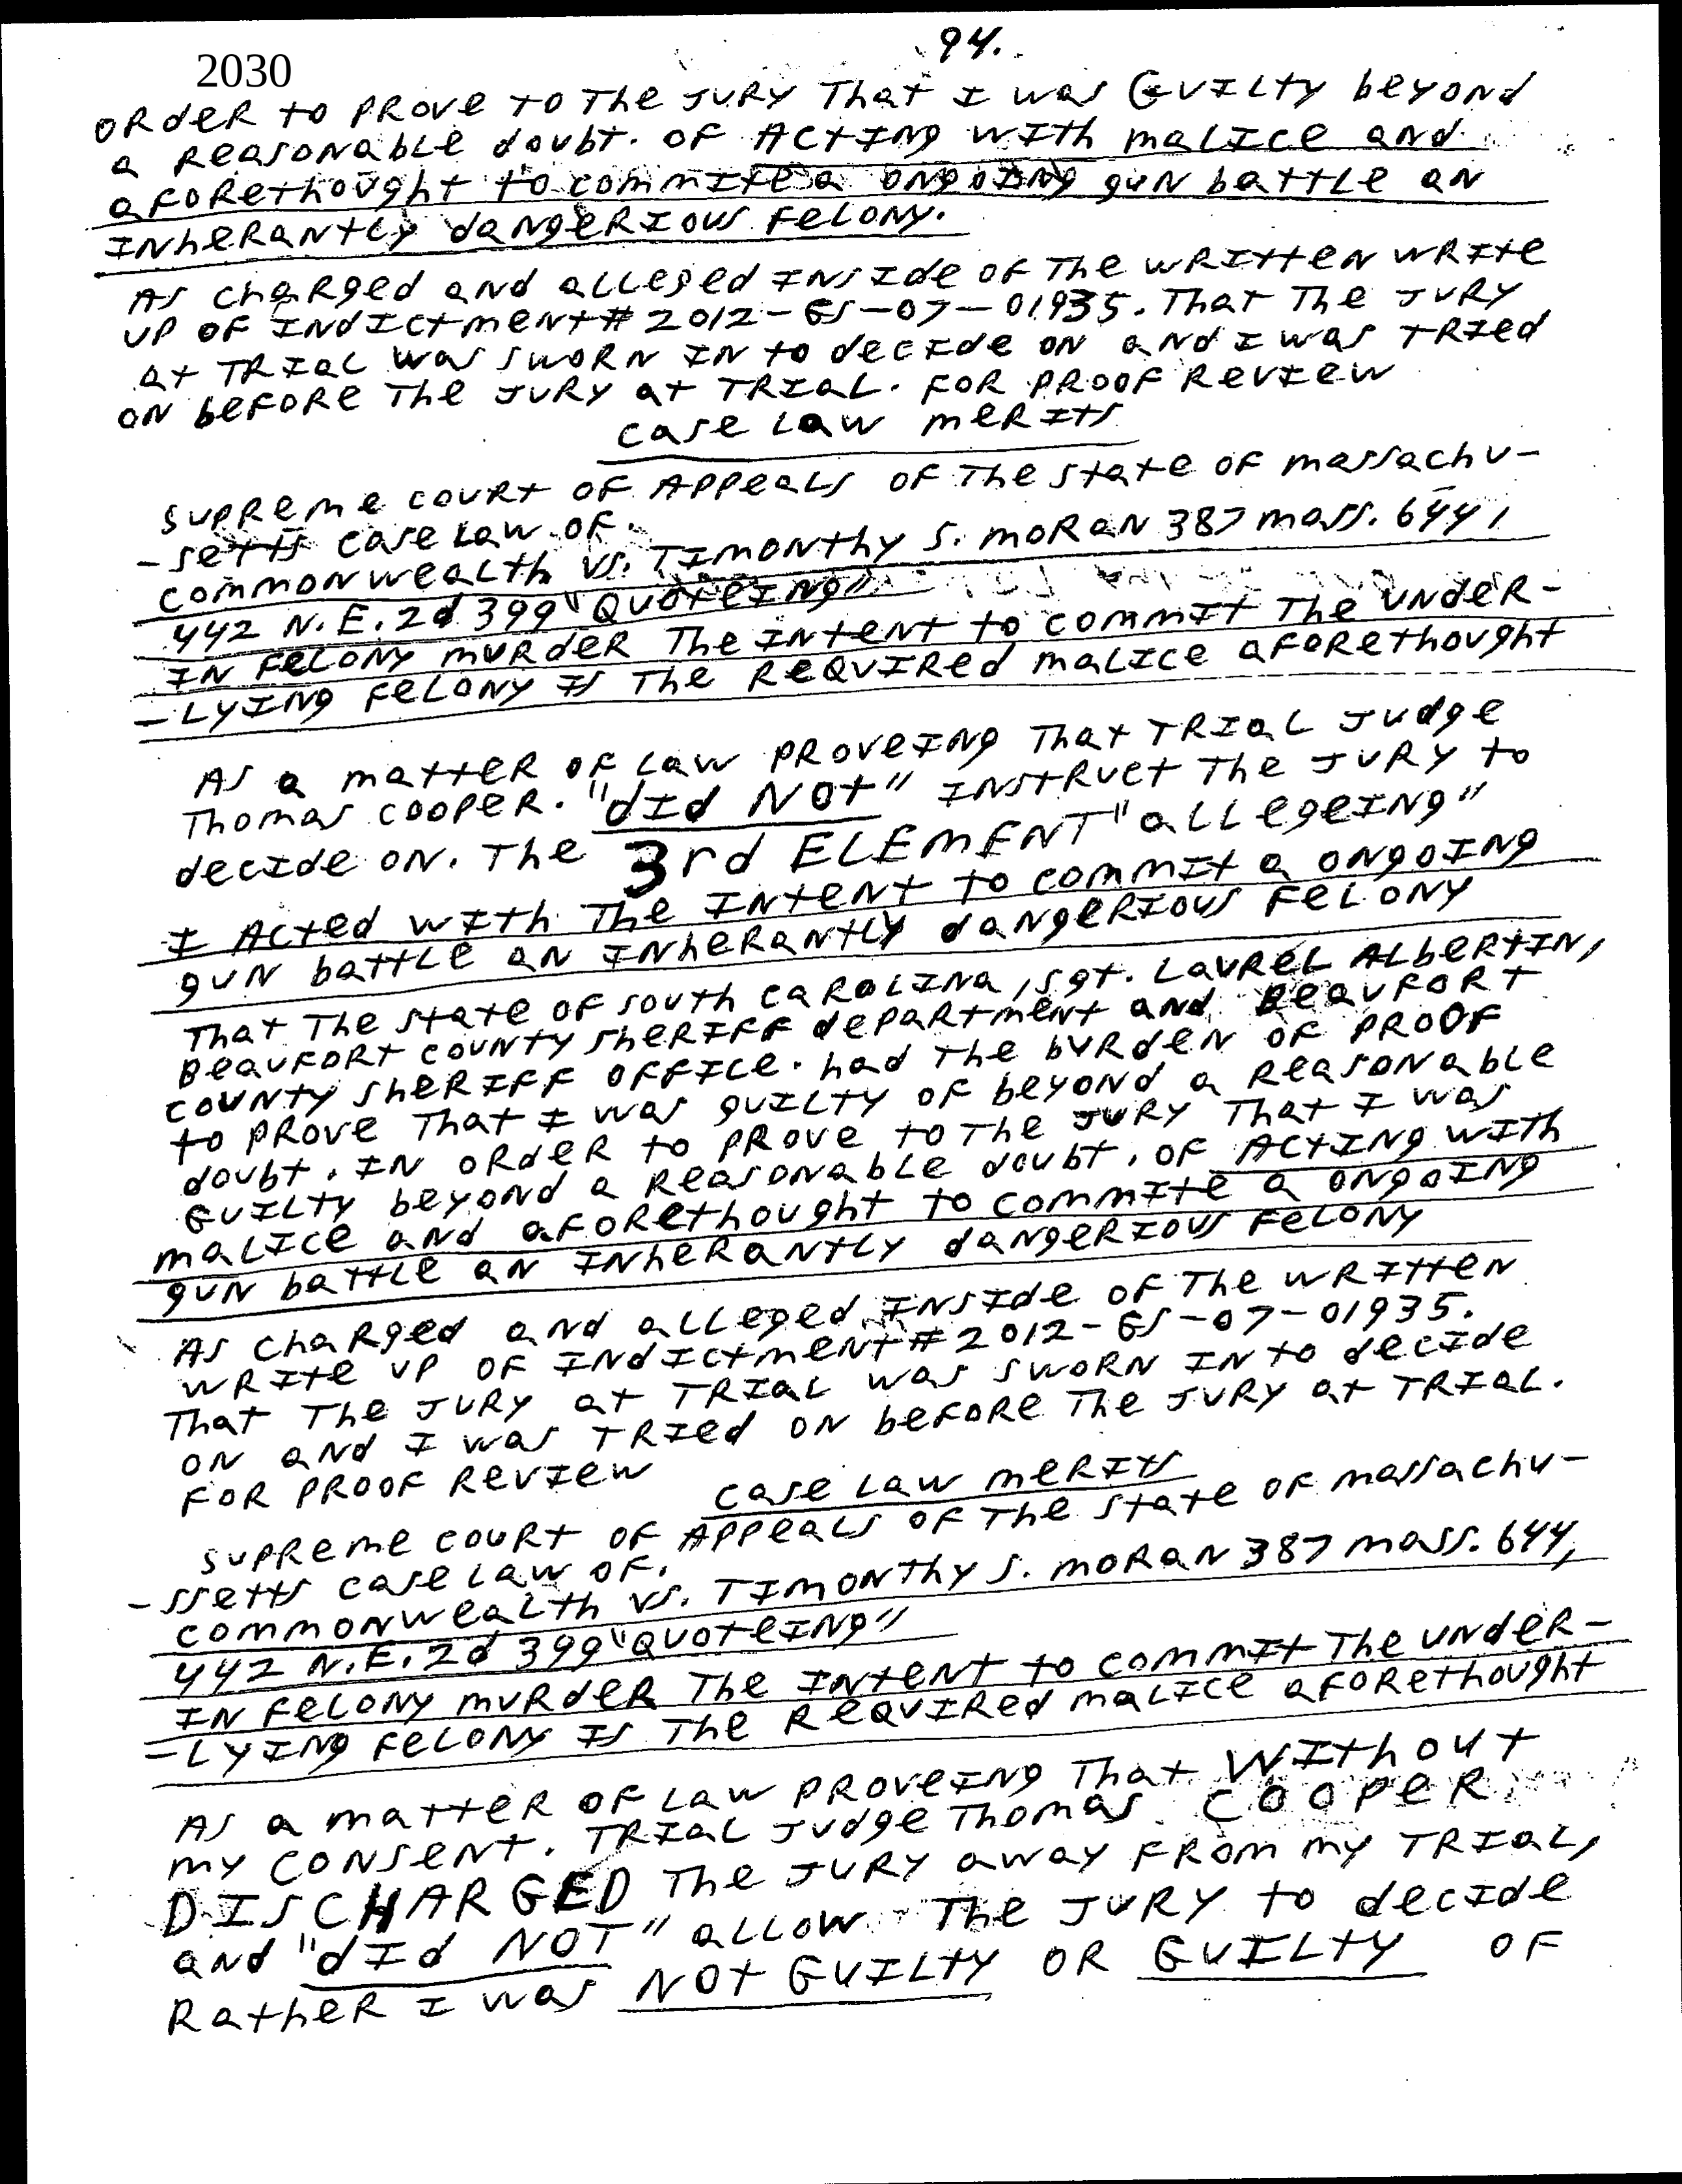 94.
2030
ORdeR to PROve to The JURY That I was GUILty beyond
a ReasonabLe doubt. OF ActIng wIth maLIce and
aForethought to commIte a ongoIng gun battLe an
InheRantLy dangeRIous FeLony.
As chaRged and aLLeged InsIde of The wRItten wRIte
UP OF IndIctment# 2012-GS-07-01935. That The JURY
at TRIaL was swoRN In to decIde on and I was TRIed
on beFoRe The JURY at TRIaL. FOR PROOF RevIew
case Law meRIts
supReme couRt OF AppeaLs OF The state OF massachu-
-setts case Law OF.
commonweaLth vs. TImonthy S. moRaN 387 mass. 644,
442 N.E.2d 399 "QuoteIng"
IN FeLony muRdeR The Intent to commIt The undeR-
-LyIng FeLony Is The RequIRed maLIce aFoRethought
As a matteR OF Law PRoveIng That TRIaL Judge
Thomas cooPeR. "dId Not" InstRuct The JURY to
decIde on. The 3rd ELEMENT "aLLegeIng"
I Acted wIth The Intent to commIt a ongoIng
gun battLe an InheRantLy dangeRIous FeLony
That The state OF south caRoLIna, sgt. LauReL ALbeRtIn,
BeauFoRt county sheRIFF depaRtment and BeauFoRt
county sheRIFF OFFIce. had The buRden OF PROOF
to PRove That I was guILty OF beyond a ReasonabLe
doubt. IN oRdeR to PRove to The JURY That I was
GuILty beyond a ReasonabLe doubt. OF ActIng wIth
maLIce and aFoRethought to commIte a ongoIng
gun battLe an InheRantLy dangeRIous FeLony
As chaRged and aLLeged InsIde OF The wRItten
wRIte UP OF IndIctment# 2012-GS-07-01935.
That The JURY at TRIaL was swoRN In to decIde
on and I was TRIed on beFoRe The JURY at TRIaL.
FOR PROOF RevIew
case Law meRIts
supReme couRt OF AppeaLs OF The state OF massachu-
-ssetts case Law OF.
commonweaLth vs. TImonthy S. moRaN 387 mass. 644,
442 N.E.2d 399 "QuoteIng"
IN FeLony muRdeR The Intent to commIt The undeR-
-LyIng FeLony Is The RequIRed maLIce aFoRethought
As a matteR OF Law PRoveIng That wIthout
my consent. TRIaL Judge Thomas cooPeR
DISCHARGED The JURY away FRom my TRIaL,
and "dId NOT" aLLow The JURY to decIde
RatheR I was Not GuILty OR GuILty OF